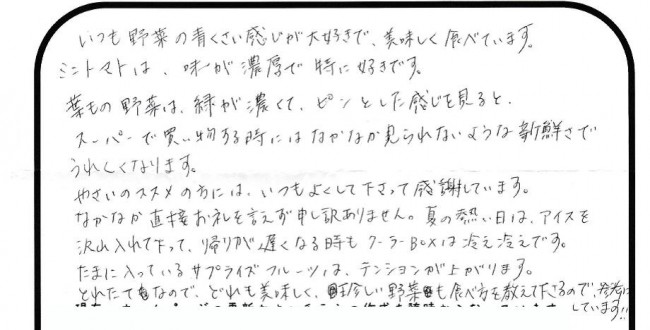 いつも野菜の青くさい感じが大好きで、美味しく食べています。
ミニトマトは、味が濃厚で特に好きです。
葉もの野菜は、緑が濃くて、ピンとした感じを見ると、
スーパーで買い物する時にはなかなか見られないような新鮮さで
うれしくなります。
やさいのススメの方には、いつもよくして下さって感謝しています。
なかなか直接お礼を言えず申し訳ありません。夏の熱い日は、アイスを
沢山入れて下って、帰りが遅くなる時もクーラーBOXは冷え冷えです。
たまに入っているサプライズフルーツは、テンションが上がります。
とれたてなので、どれも美味しく、珍しい野菜も食べ方を教えて下さるので、参考に
しています!!